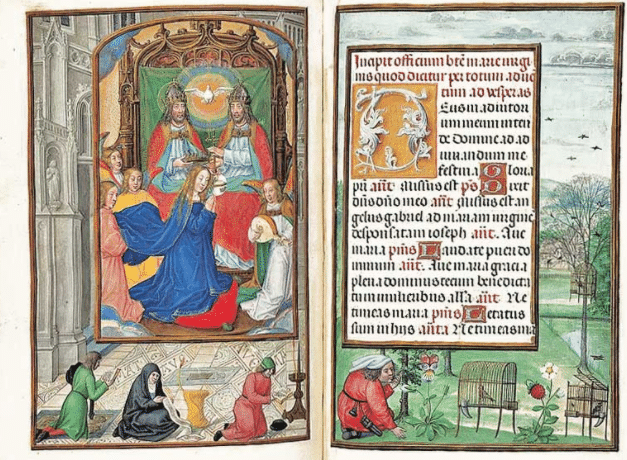 Incipit officium bte marie virgi
nis quod dicitur per totum advē
tum ad vesperas
Deus in adiutor
ium meum inten
de Domine ad ad
iuvandum me
festina Glora
pri añt. Missus est ps Dixit
dñs dño meo añt Missus est an
gelus gabriel ad mariam virginē
desponsatam ioseph añt. Aue
maria pius Laudate pueri do
minum añt. Aue maria gracia
plena dominus tecum benedicta
tu in mulieribus alla añt Ne
timeas maria psius Letatus
sum in hiis anta Ne timeas ma